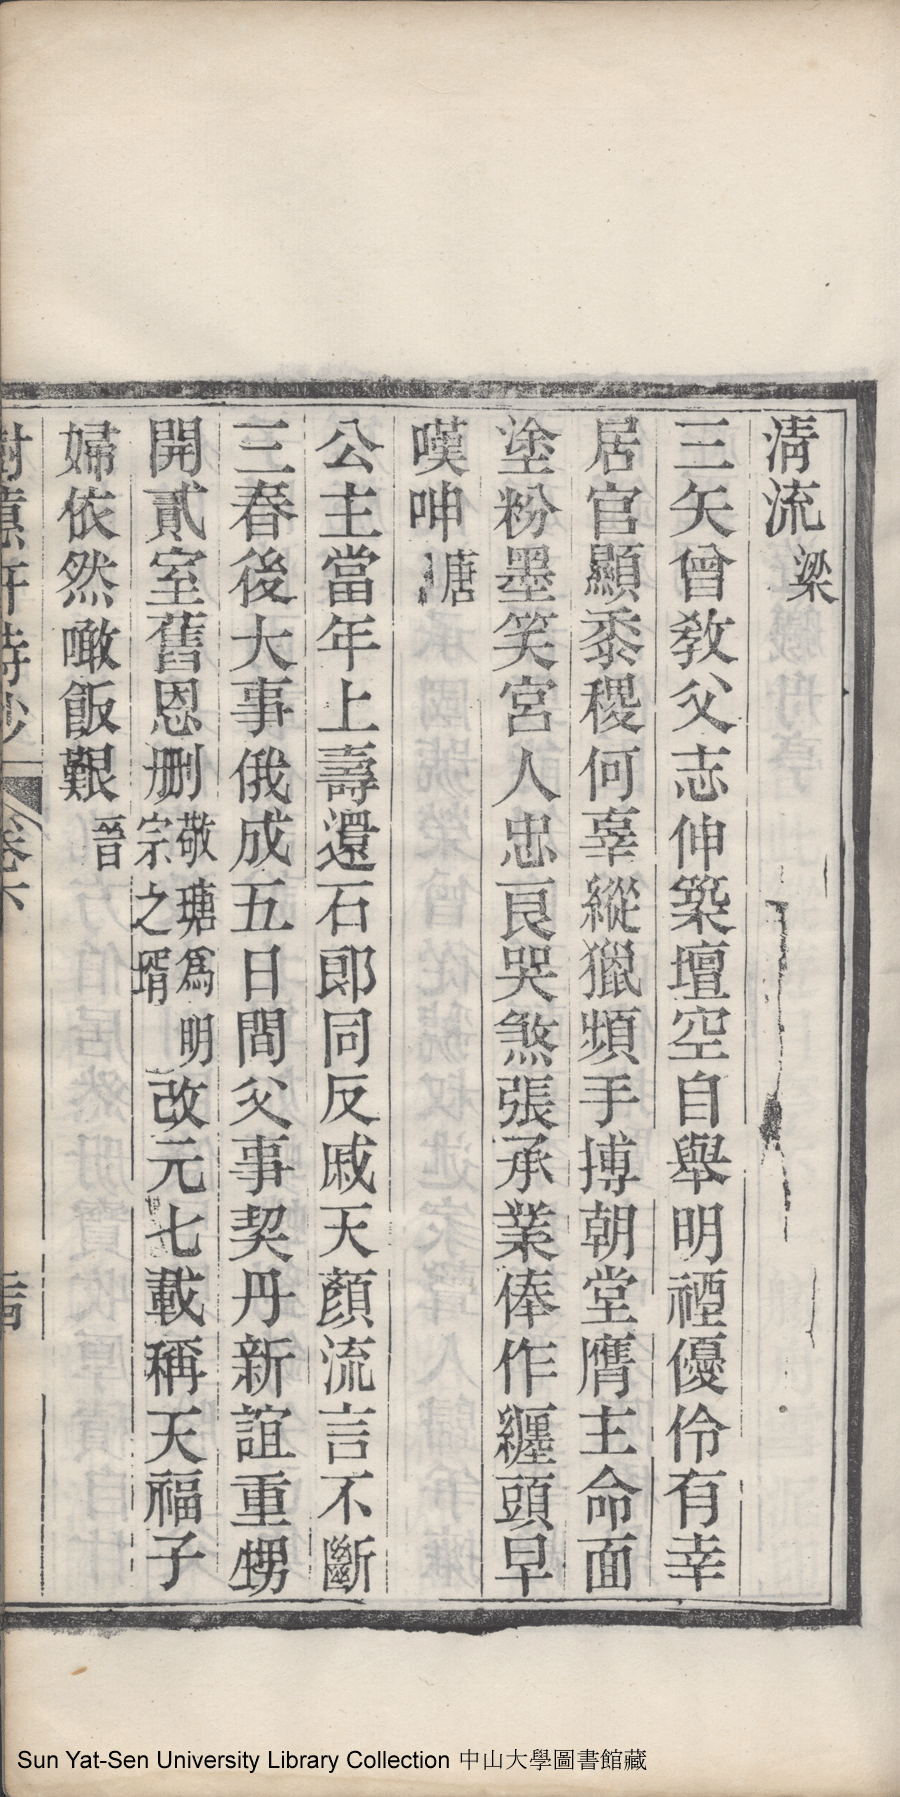 清流梁
三矢曾敎父志伸築壇空自舉明禋優伶有幸
居官顯黍稷何辜縱獵頻手搏朝堂膺主命面
塗粉墨笑宮人忠良哭煞張承業俸作纏頭早
嘆呻唐
公主當年上壽還石郎同反戚天顏流言不斷
三春後大事俄成五日間父事契丹新誼重甥
開貳室舊恩删敬瑭爲明宗之壻改元七載稱天福子
婦依然噉飯艱晉
樹蕙軒詩鈔
卷六
Sun Yat-Sen University Library Collection 中山大學圖書館藏